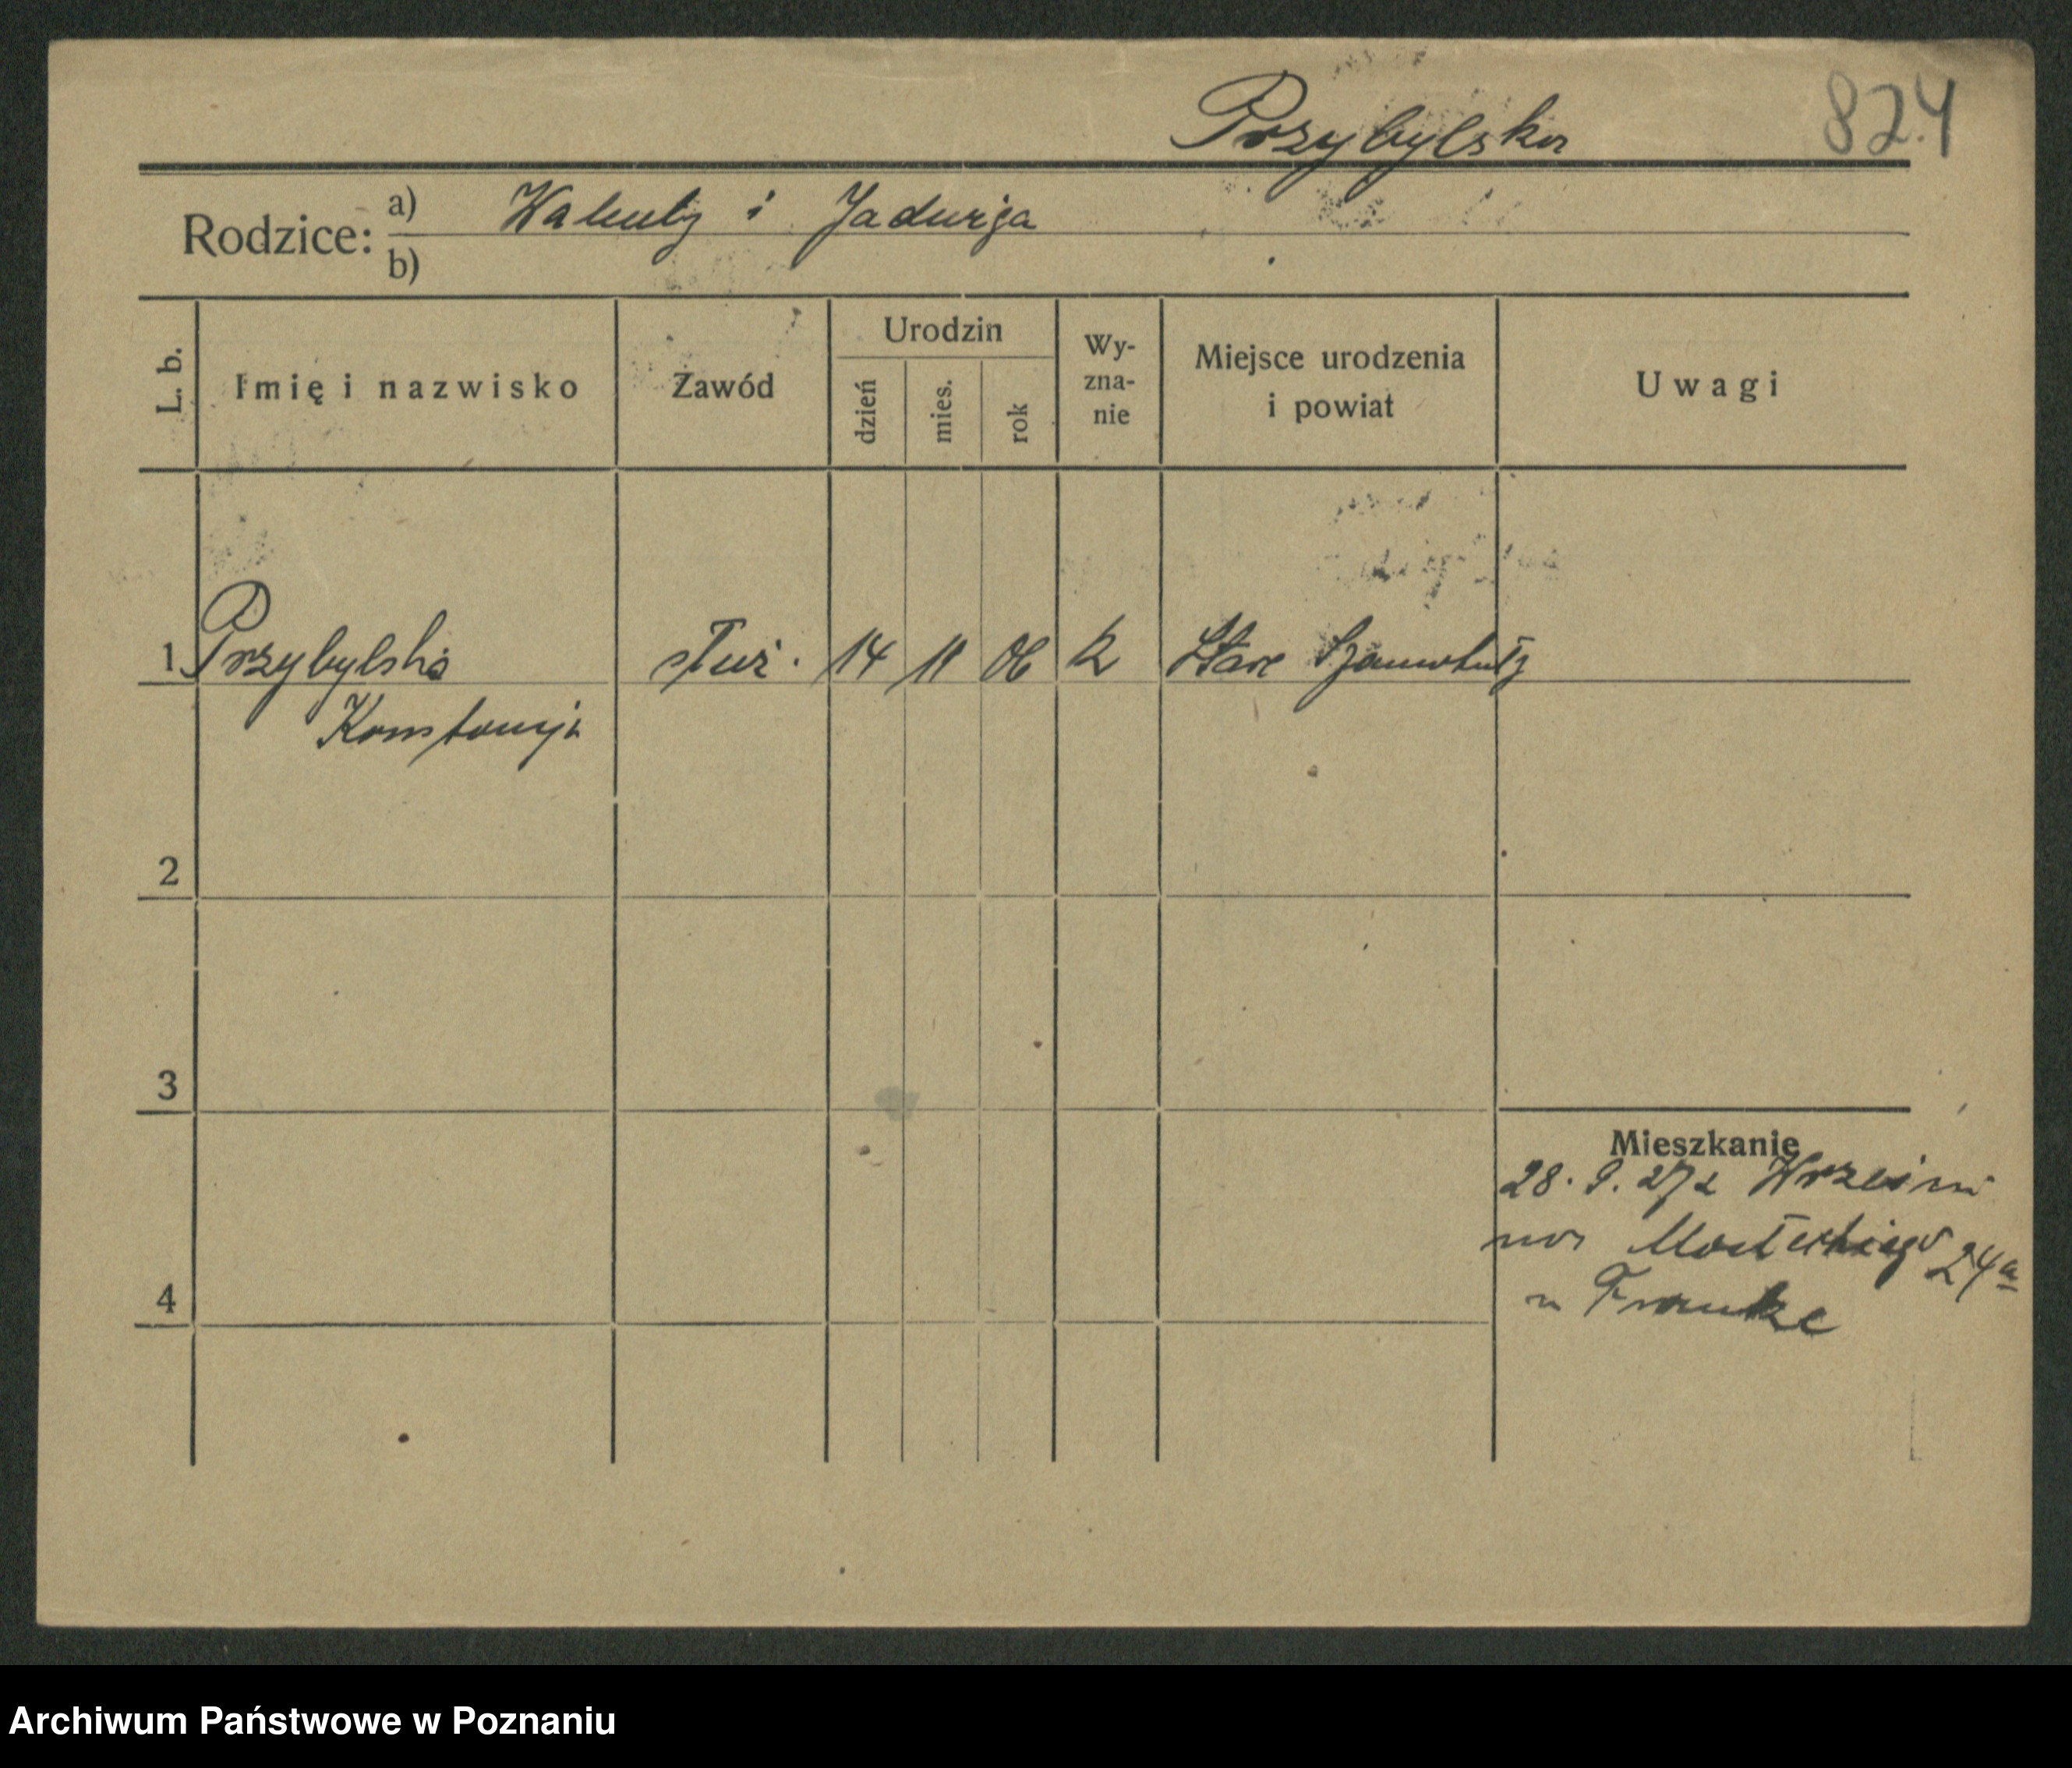 Przybylska 824
Rodzice: a) Walenty i Jadwiga
b)
L. b.
Imię i nazwisko
Zawód
Urodzin
dzień
mies.
rok
Wy-
zna-
nie
Miejsce urodzenia
i powiat
Uwagi
1 Przybylska służ. 14 11 06 k Stare Szamotuły
Konstancja
2
3
Mieszkanie
28. 9. 27 z Wrześni
24a
4
u Franke
Archiwum Państwowe w Poznaniu